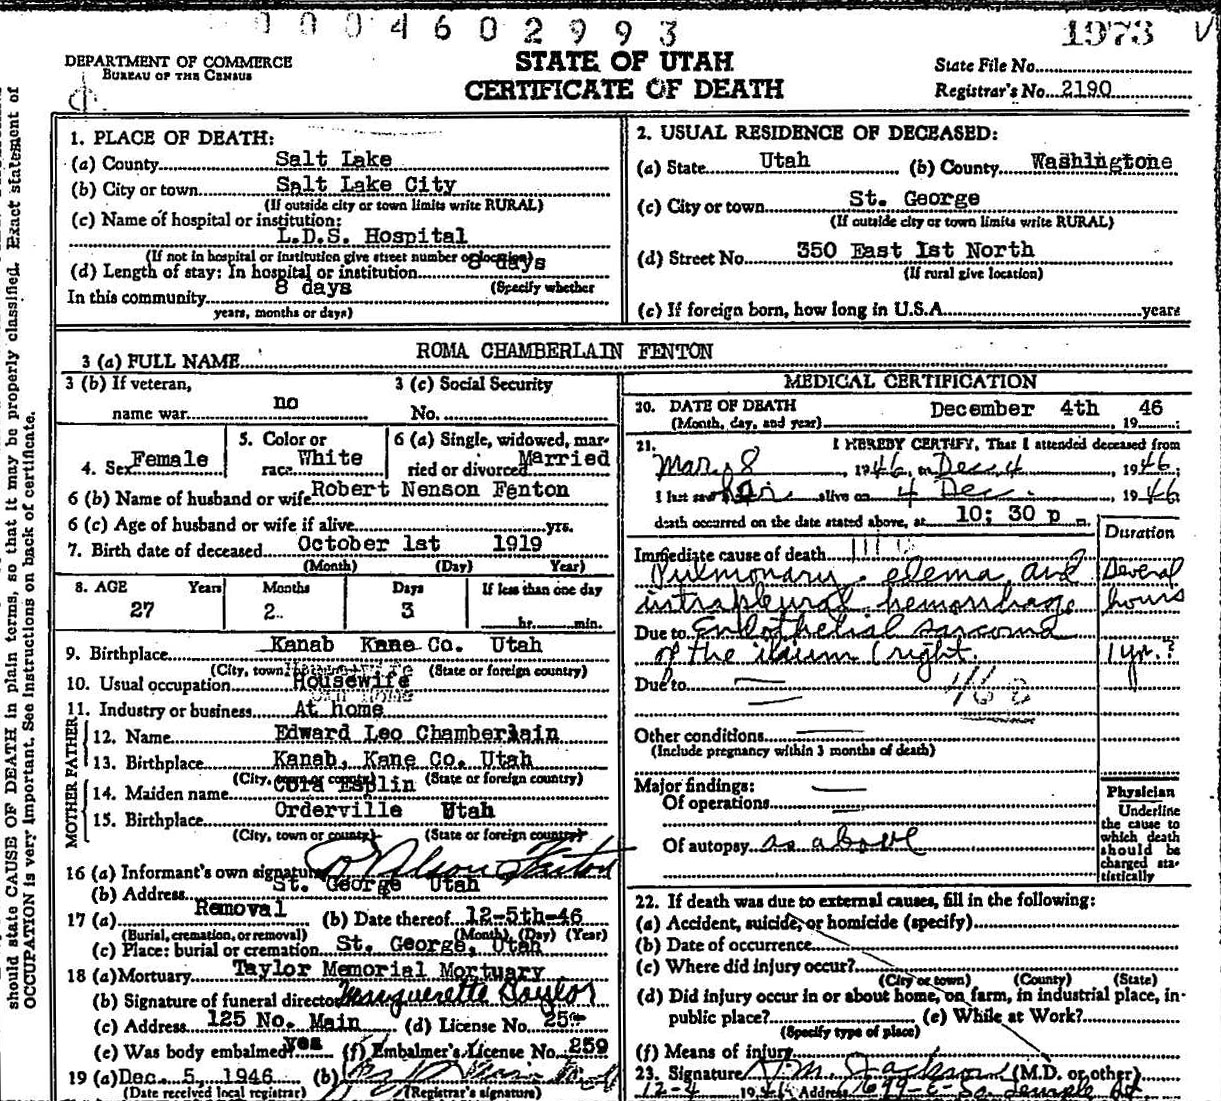 0004602993
1973
DEPARTMENT OF COMMERCE
BUREAU OF THE CENSUS
STATE OF UTAH
CERTIFICATE OF DEATH
State File No.
Registrar's No. 2190
should state CAUSE OF DEATH in plain terms, so that it may be properly classified. Exact statement of
OCCUPATION is very important. See instructions on back of certificate.
1. PLACE OF DEATH:
(a) County Salt Lake
(b) City or town Salt Lake City
(If outside city or town limits write RURAL)
(c) Name of hospital or institution:
L.D.S. Hospital
(If not in hospital or institution give street number or location)
(d) Length of stay: In hospital or institution 8 days
(Specify whether
In this community 8 days
years, months or days)
2. USUAL RESIDENCE OF DECEASED:
(a) State Utah (b) County Washingtone
(c) City or town St. George
(If outside city or town limits write RURAL)
(d) Street No. 350 East 1st North
(If rural give location)
(e) If foreign born, how long in U.S.A. years
3 (a) FULL NAME ROMA CHAMBERLAIN FENTON
3 (b) If veteran, name war no
3 (c) Social Security No.
4. Sex Female
5. Color or race White
6 (a) Single, widowed, married or divorced Married
6 (b) Name of husband or wife Robert Nenson Fenton
6 (c) Age of husband or wife if alive yrs.
7. Birth date of deceased October 1st 1919
(Month) (Day) Year)
8. AGE Years Months Days If less than one day
27 2 3 hr. min.
9. Birthplace Kanab Kane Co. Utah
(City, town (State or foreign country)
10. Usual occupation Housewife
11. Industry or business At home
FATHER
12. Name Edward Leo Chamberlain
13. Birthplace Kanab, Kane Co. Utah
(City, town or county) (State or foreign country)
MOTHER
14. Maiden name Cora Esplin
15. Birthplace Orderville Utah
(City, town or county) (State or foreign country)
16 (a) Informant's own signature R Nelson Fenton
(b) Address St. George Utah
17 (a) Removal (b) Date thereof 12-5th-46
(Burial, cremation, or removal) (Month) (Day) (Year)
(c) Place: burial or cremation St. George, Utah
18 (a) Mortuary Taylor Memorial Mortuary
(b) Signature of funeral director Marguerette Taylor
(c) Address 125 No. Main (d) License No.
(e) Was body embalmed? yes (f) Embalmer's License No. 259
19 (a) Dec. 5, 1946 (b)
(Date received local registrar) (Registrar's signature)
MEDICAL CERTIFICATION
20. DATE OF DEATH December 4th 46
(Month, day, and year) , 19
21. I HEREBY CERTIFY, That I attended deceased from
8, 1946, Dec 4, 1946;
I last saw alive on 4 Dec., 1946
death occurred on the date stated above, at 10; 30 p m.
Duration
Immediate cause of death
Pulmonary edema and Several
intrapleural hemorrhage hours
Due to Endothelial sarcoma
of the ilium (right. 1 yr.?
Due to
Other conditions
(Include pregnancy within 3 months of death)
Major findings:
Of operations
Of autopsy as above
Physician
Underline
the cause to
which death
should be
charged sta-
tistically
22. If death was due to external causes, fill in the following:
(a) Accident, suicide, or homicide (specify)
(b) Date of occurrence
(c) Where did injury occur?
(City or town) (County) (State)
(d) Did injury occur in or about home, on farm, in industrial place, in-
public place? (e) While at Work?
(Specify type of place)
(f) Means of injury
23. Signature (M.D. or other)
12-4 1946 Address So. Temple